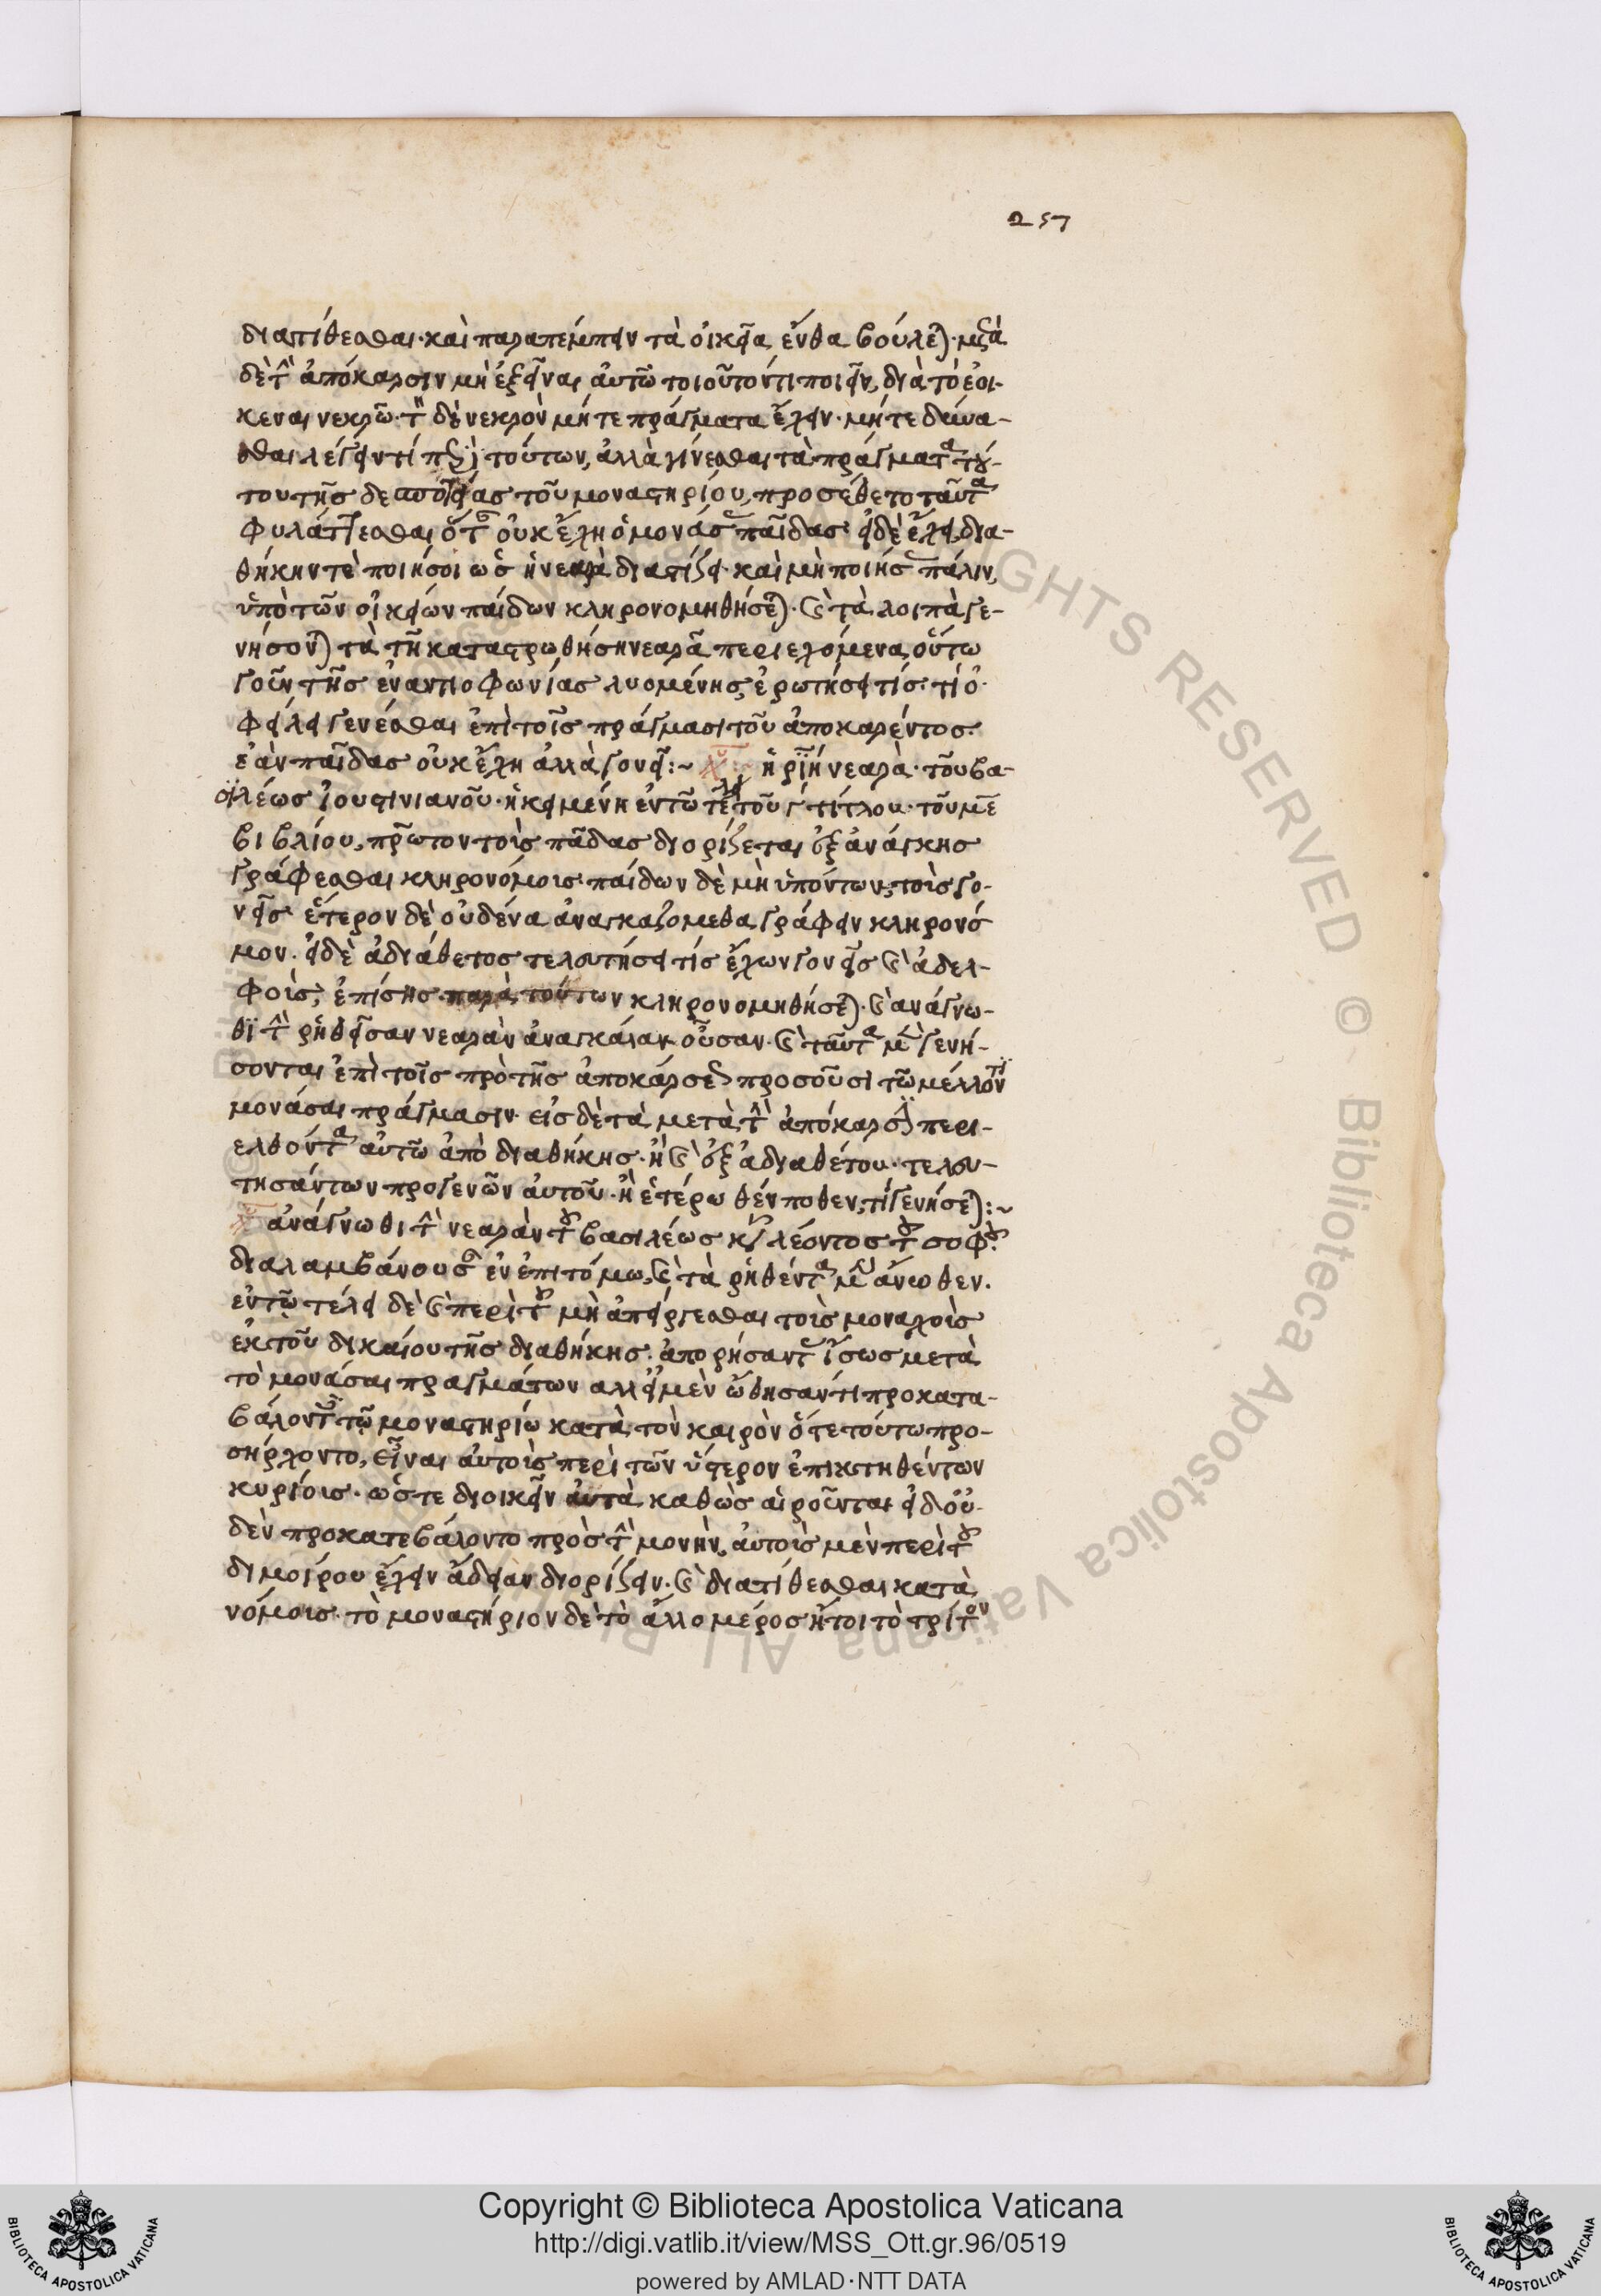 257
διατίθεσθαι· καὶ παραπέμπειν τὰ οἰκεῖα ἔνθα βούλεται· μετὰ
δὲ τὴν ἀπόκαρσιν μὴ ἐξεῖναι αὐτῶ τοιοῦτόν τι ποιεῖν, διὰ τὸ ἐοι-
κέναι νεκρῶ· τὸν δὲ νεκρὸν μήτε πράγματα ἔχειν· μήτε δύνα-
σθαι λέγειν τί περὶ τούτων, ἀλλὰ γίνεσθαι τὰ πράγματα τού-
του τῆς δεσποτείας τοῦ μοναστηρίου, προσέθετο ταῦτα
φυλάττεσθαι ὅταν οὐκ ἔχη ὁ μονάσας παῖδας· εἰ δὲ ἔχει, δια-
θήκην τὲ ποιήσοι ὡς ἡ νεαρὰ διατίζει· καὶ μὴ ποιήσας πάλιν,
ὑπὸ τῶν οἰκείων παίδων κληρονομηθήσεται· καὶ τὰ λοιπὰ γε-
νήσονται τὰ τῆ καταστρωθήση νεαρᾶ περιεχόμενα, οὕτω
γοῦν τῆς ἐναντιοφωνίας λυομένης, ἐρωτήσει τίς· τί ὀ-
φείλει γενέσθαι ἐπὶ τοῖς πράγμασι τοῦ ἀποκαρέντος·
ἐὰν παῖδας οὐκ ἔχη ἀλλὰ γονεῖς:~ ἡ ριε νεαρὰ· τοῦ βα-
σιλέως ἰουστινιανοῦ· ἡ κειμένη ἐν τῶ τέλει τοῦ γ τίτλου· τοῦ με
βιβλίου, πρῶτον τοὺς παῖδας διορίζεται ἐξ ἀνάγκης
γράφεσθαι κληρονόμους· παίδων δὲ μὴ ὑπόντων, τοὺς γο-
νεῖς· ἕτερον δὲ οὐδένα ἀναγκαζόμεθα γράφειν κληρονό-
μον. εἰ δὲ ἀδιάθετος τελευτήσει τίς ἔχων γονεῖς καὶ ἀδελ-
φοὺς, ἐπίσης παρὰ τούτων κληρονομηθήσεται· καὶ ἀνάγνω-
θι τὴν ῥηθεῖσαν νεαρὰν ἀναγκαίαν οὖσαν· καὶ ταῦτα μὲν γενή-
σονται ἐπὶ τοῖς πρὸ τῆς ἀποκάρσεως προσοῦσι τῶ μέλλοντι
μονάσαι πράγμασιν· εἰς δὲ τὰ μετὰ τὴν ἀπόκαρσιν περι-
ελθόντα αὐτῶ ἀπὸ διαθήκης· ἢ καὶ ἐξ ἀδιαθέτου· τελευ-
τησάντων προγενῶν αὐτοῦ· ἢ ἑτέρωθέν ποθεν, τί γενήσεται:~
ἀνάγνωθι τὴν νεαρὰν τοῦ βασιλέως κυροῦ λέοντος τοῦ σοφοῦ·
διαλαμβάνουσαν ἐν ἐπιτόμω, καὶ τὰ ῥηθέντα μὲν ἄνωθεν.
ἐν τῶ τέλει δὲ καὶ περὶ τοῦ μὴ ἀπείργεσθαι τοὺς μοναχοὺς
ἐκ τοῦ δικαίου τῆς διαθήκης· ἀπορήσαντας ἴσως μετὰ
τὸ μονάσαι πραγμάτων ἀλλ' εἰ μὲν ὤθησάν τι προκατα-
βάλοντες τῶ μοναστηρίω κατὰ τὸν καιρὸν ὅτε τούτω προ-
σήρχοντο, εἶναι αὐτοὺς περὶ τῶν ὕστερον ἐπικτηθέντων
κυρίους· ὥστε διοικεῖν αὐτὰ καθὼς αἱροῦνται· εἰ δ' οὐ-
δὲν προκατεβάλοντο πρὸς τὴν μονὴν, αὐτοὺς μὲν περὶ τοῦ
διμοίρου ἔχειν ἄδειαν διορίζειν· καὶ διατίθεσθαι κατὰ
νόμους· τὸ μοναστήριον δὲ τὸ ἄλλο μέρος ἤτοι τὸ τρίτον
Copyright © Biblioteca Apostolica Vaticana
http://digi.vatlib.it/view/MSS_Ott.gr.96/0519
powered by AMLAD·NTT DATA